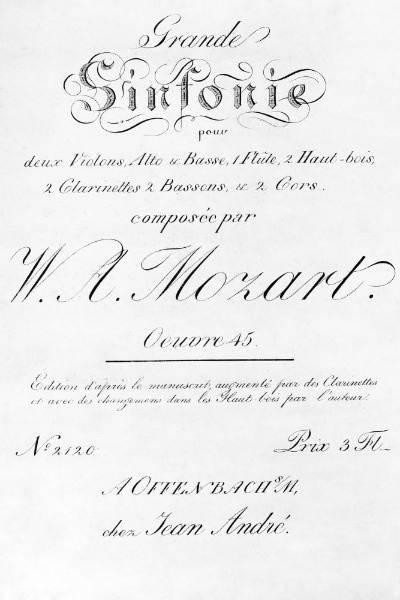 Grande
Sinfonie
pour
deux Violons, Alto & Basse, 1 Flûte, 2 Haut-bois,
2 Clarinettes 2 Bassons, & 2 Cors.
composée par
W. A. Mozart.
Oeuvre 45.
Edition d'après le manuscrit, augmenté par des Clarinettes
et avec des changemens dans les Haut-bois par l'auteur.
No. 2120 Prix 3 Fl.
A OFFENBACH s/M,
chez Jean André.